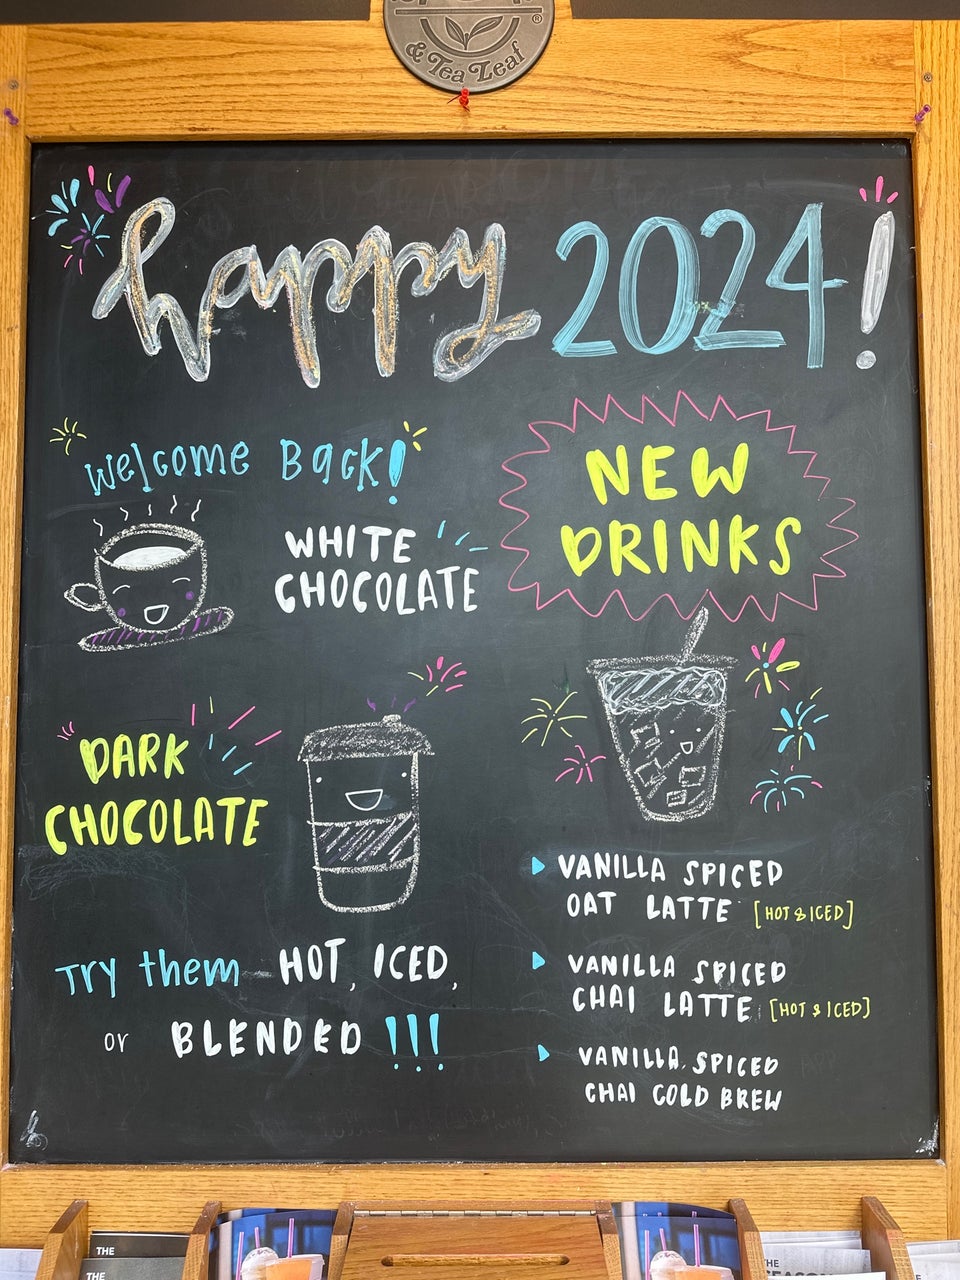 & Tea Leaf
®
happy 2024!
Welcome Back!
WHITE
CHOCOLATE
DARK
CHOCOLATE
Try them HOT, ICED,
or BLENDED !!!
NEW
DRINKS
VANILLA SPICED
OAT LATTE [HOT & ICED]
VANILLA SPICED
CHAI LATTE [HOT & ICED]
VANILLA SPICED
CHAI COLD BREW
THE
THE
THE